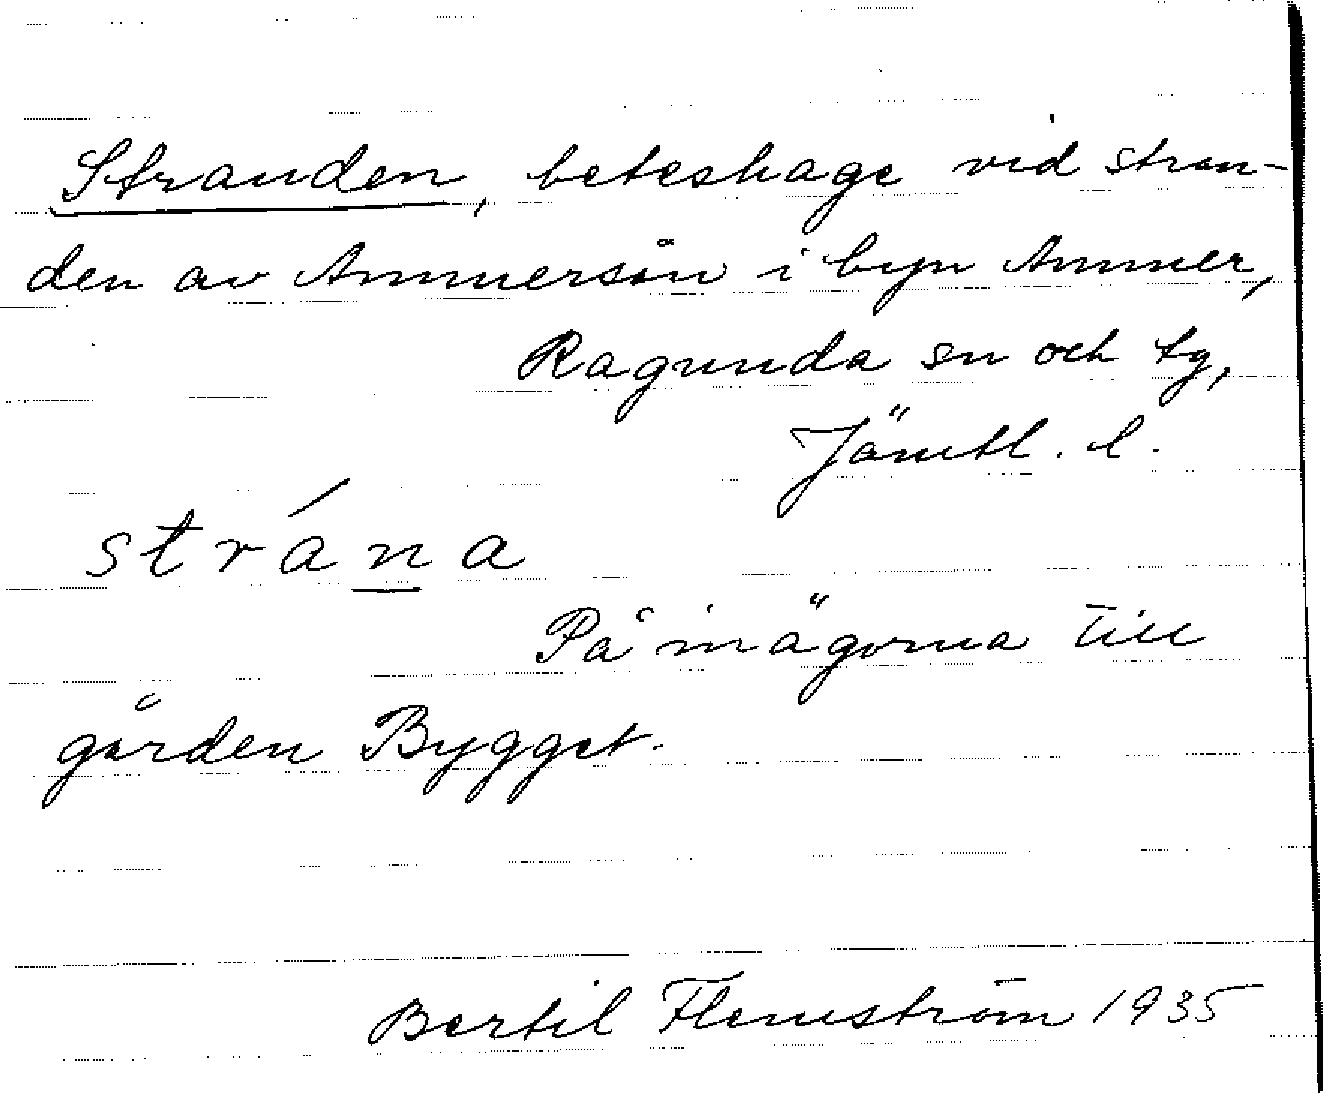 Stranden, beteshage vid stran-
den av Ammersån i byn Ammer,
Ragunda sn och tg,
Jämtl. l.
strána
På inägorna till
gården Bygget.
Bertil Flemström 1935